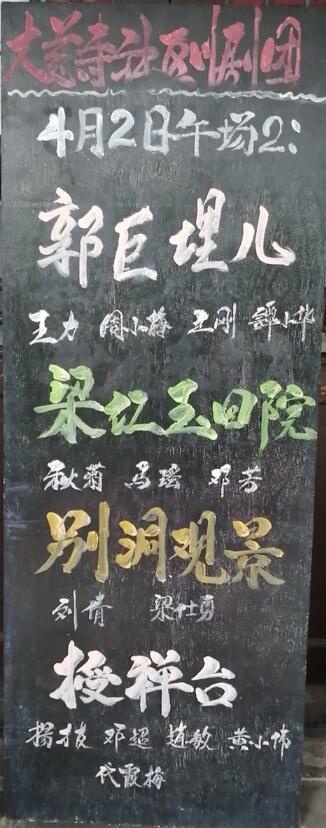 大慈寺社区川剧团
4月2日午场2:
郭巨埋儿
王力 周小梅 王刚 谭小华
梁红玉回院
秋菊 马瑶 邓芳
别洞观景
刘倩 梁仕勇
授禅台
邓超 赵敏 黄小伟
代霞梅